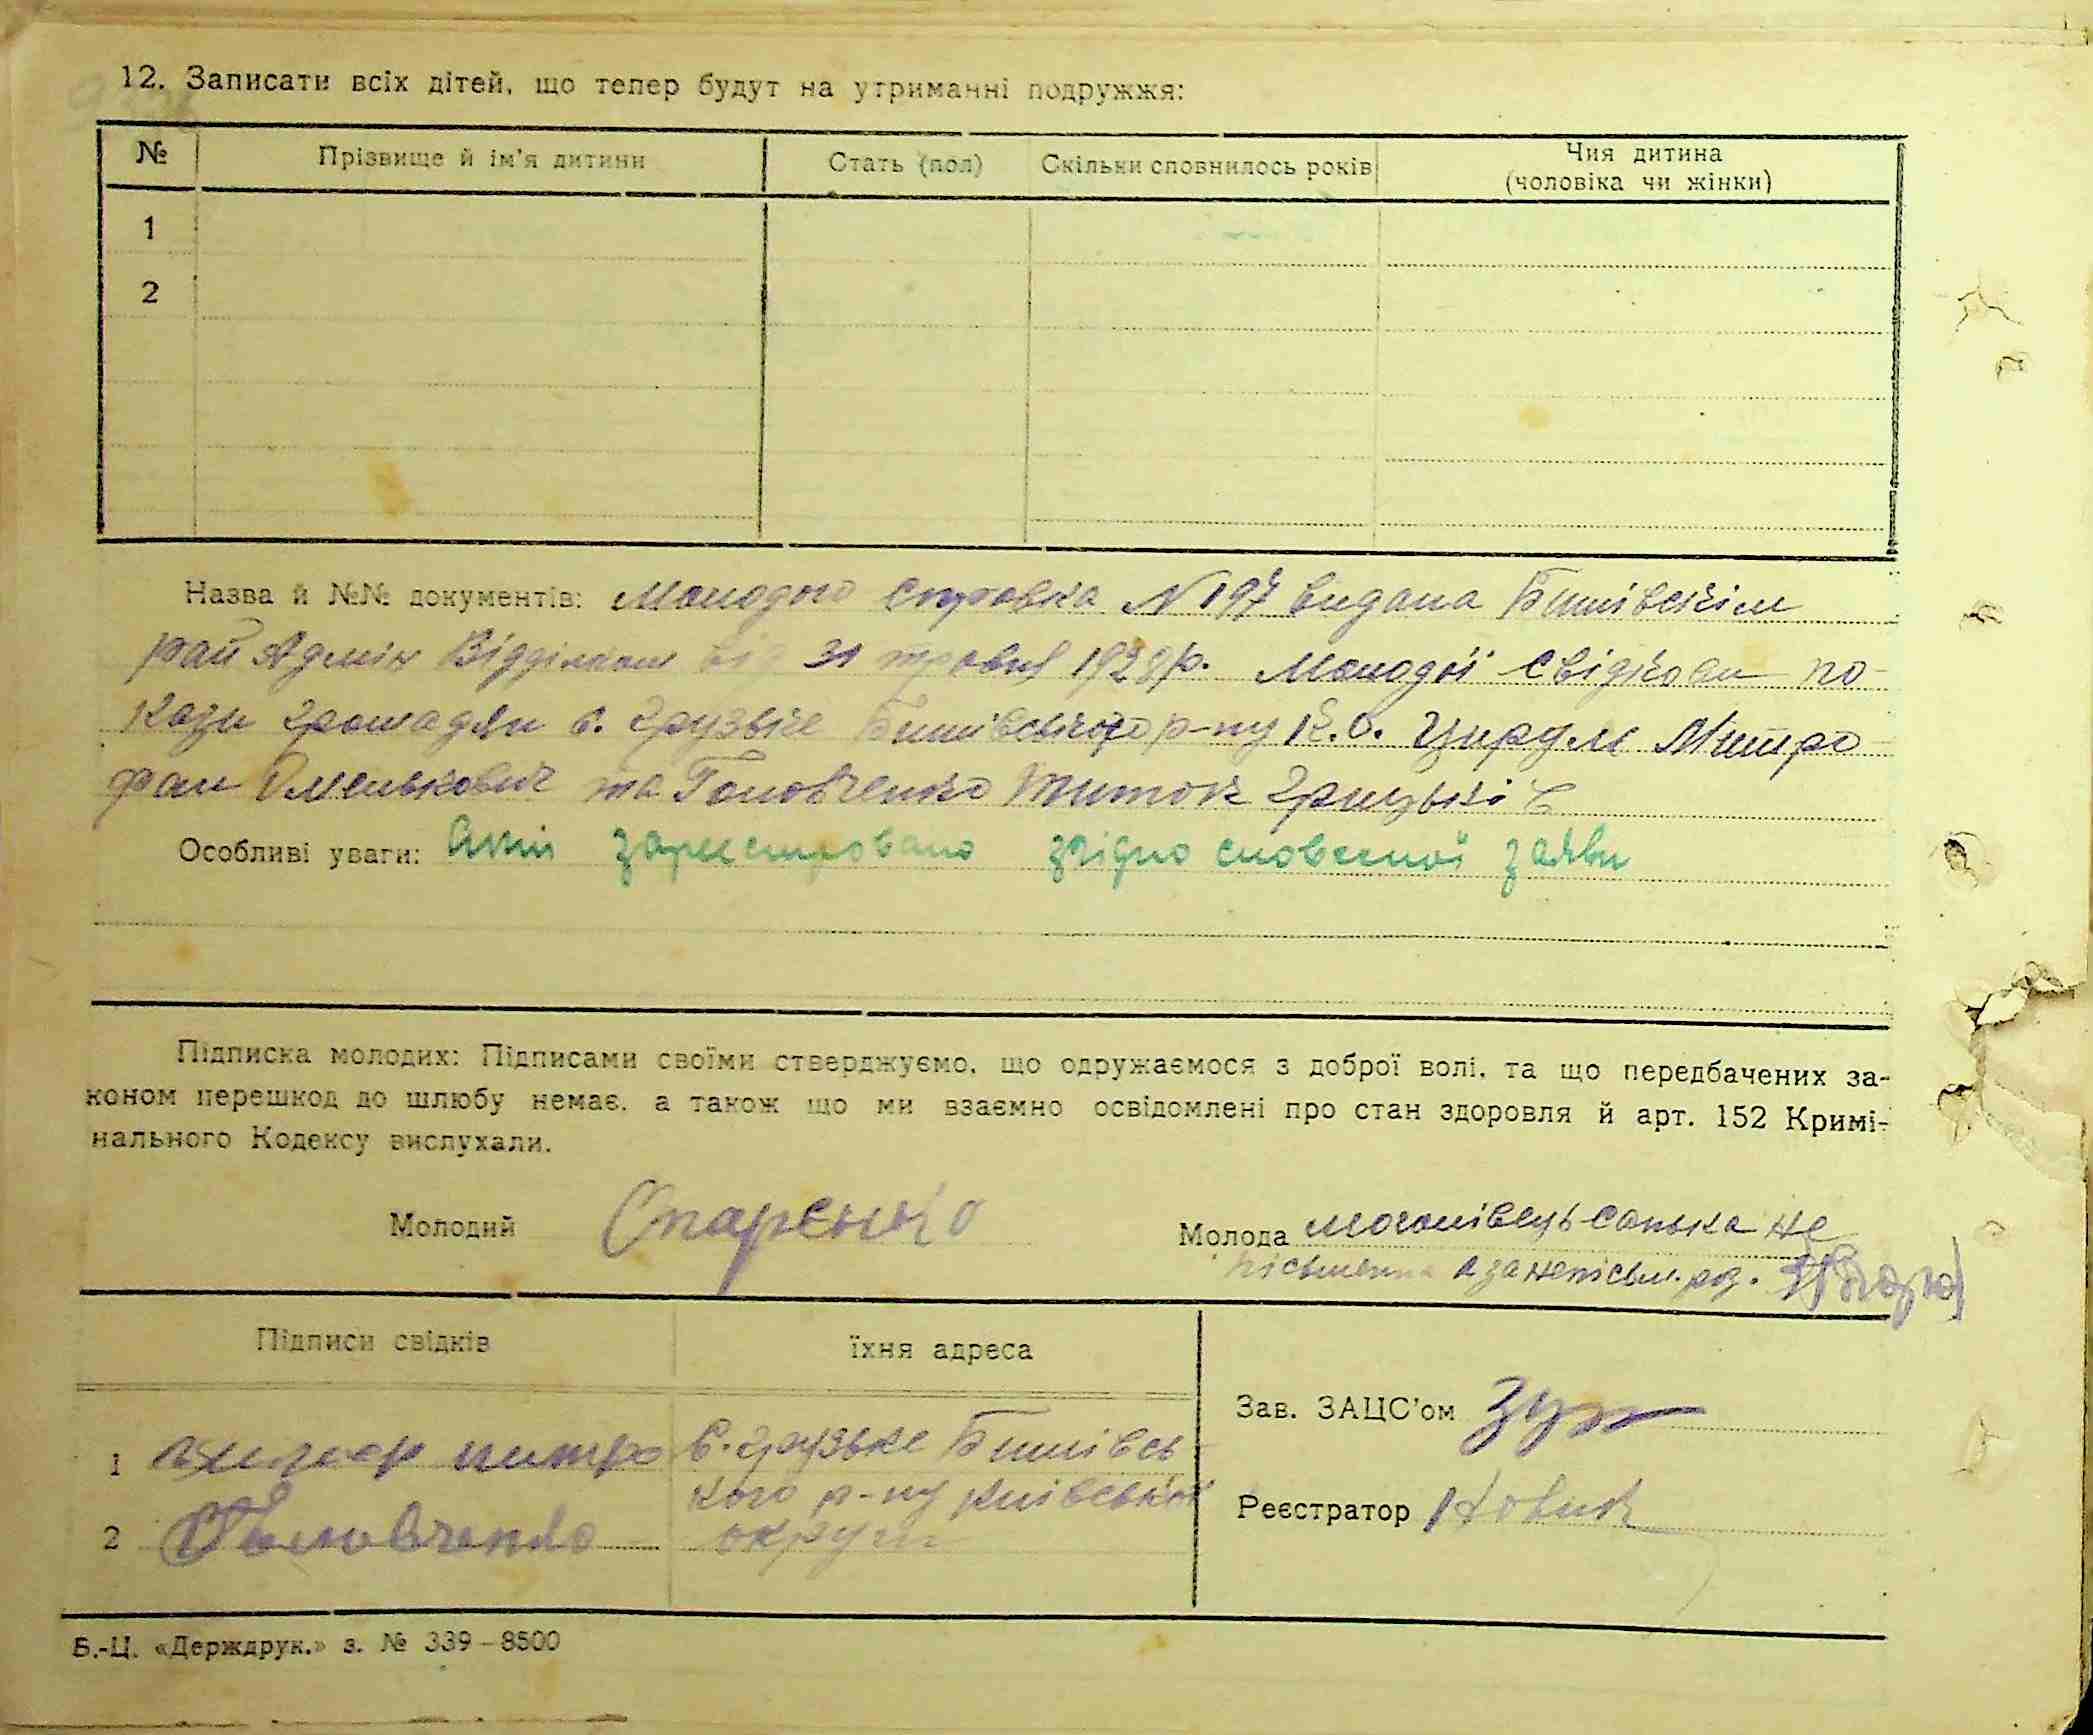 12. Записати всіх дітей, що тепер будут на утриманні подружжя:
№ Прізвище й ім'я дитини Стать (пол) Скільки сповнилось років Чия дитина (чоловіка чи жінки)
1
2
Назва й №№ документів: Молодого справка N 197 видана Бишівскім
рай Адмін Відділком від 31 травня 1928 р. Молодої свідкови по-
кази громадян с. Грузьке Бишівського р-ну К.О. Цируль Митро-
фан Омелькович та Головченко Титок Грицьків
Особливі уваги: Акт зареєстровано згідно словесної заяви
Підписка молодих: Підписами своїми стверджуємо, що одружаємося з доброї волі, та що передбачених за-
коном перешкод до шлюбу немає, а також що ми взаємно освідомлені про стан здоровля й арт. 152 Кримі-
нального Кодексу вислухали.
Молодий Молода Санька не
пісьменна а за непісьм. роз.
Підписи свідків їхня адреса
Зав. ЗАЦС'ом
1 с. Грузьке Бишівсь-
кого р-ну Київської
Реєстратор Новик
2 Головченко округи
Б.-Ц. «Держдрук.» з. № 339–8500